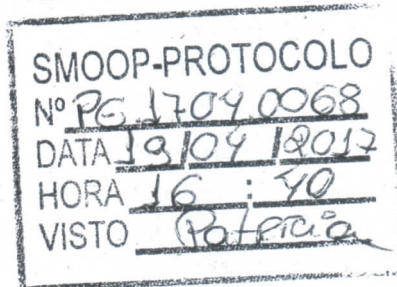 SMOOP-PROTOCOLO
Nº PG.1704.0068
DATA 19/04/2017
HORA 16:40
VISTO Patricia